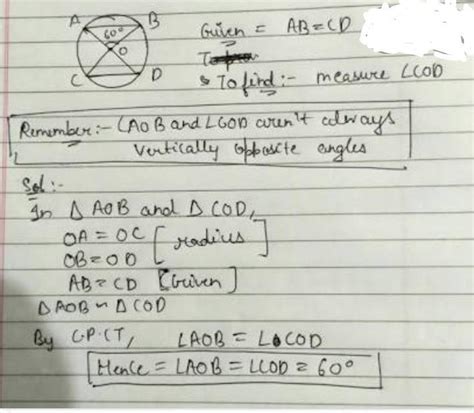 A B
60°
O
C D
Given = AB = CD
To find :- measure ∠COD
Remember:- ∠AOB and ∠COD aren't always
vertically opposite angles
Sol :-
In △ AOB and △ COD,
OA = OC [radius]
OB = OD
AB = CD [Given]
△AOB ~ △COD
By C.P.CT, ∠AOB = ∠COD
Hence = ∠AOB = ∠COD = 60°